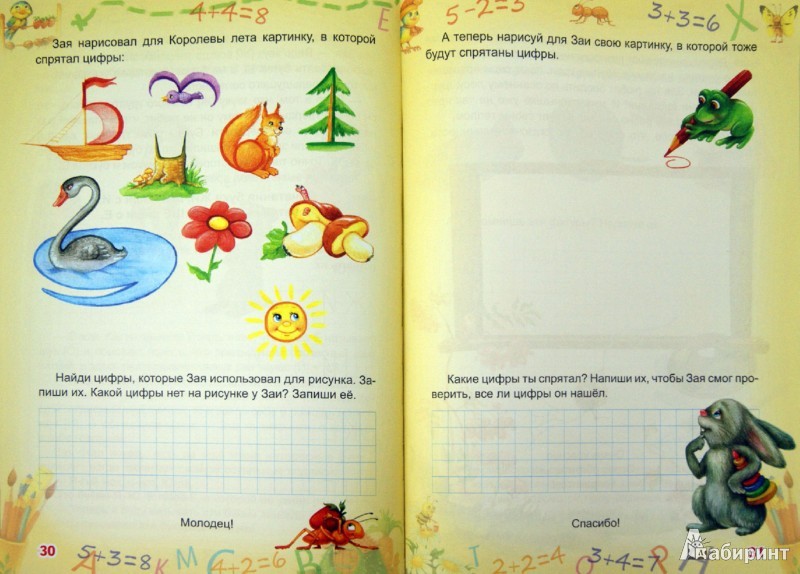 4+4=8
E
Зая нарисовал для Королевы лета картинку, в которой
спрятал цифры:
5
Найди цифры, которые Зая использовал для рисунка. За-
пиши их. Какой цифры нет на рисунке у Заи? Запиши её.
Молодец!
30
5+3=8
К М
4+2=6
5-2=3
3+3=6
А теперь нарисуй для Заи свою картинку, в которой тоже
будут спрятаны цифры.
Какие цифры ты спрятал? Напиши их, чтобы Зая смог про-
верить, все ли цифры он нашёл.
Спасибо!
2+2=4
3+4=7
Лабиринт